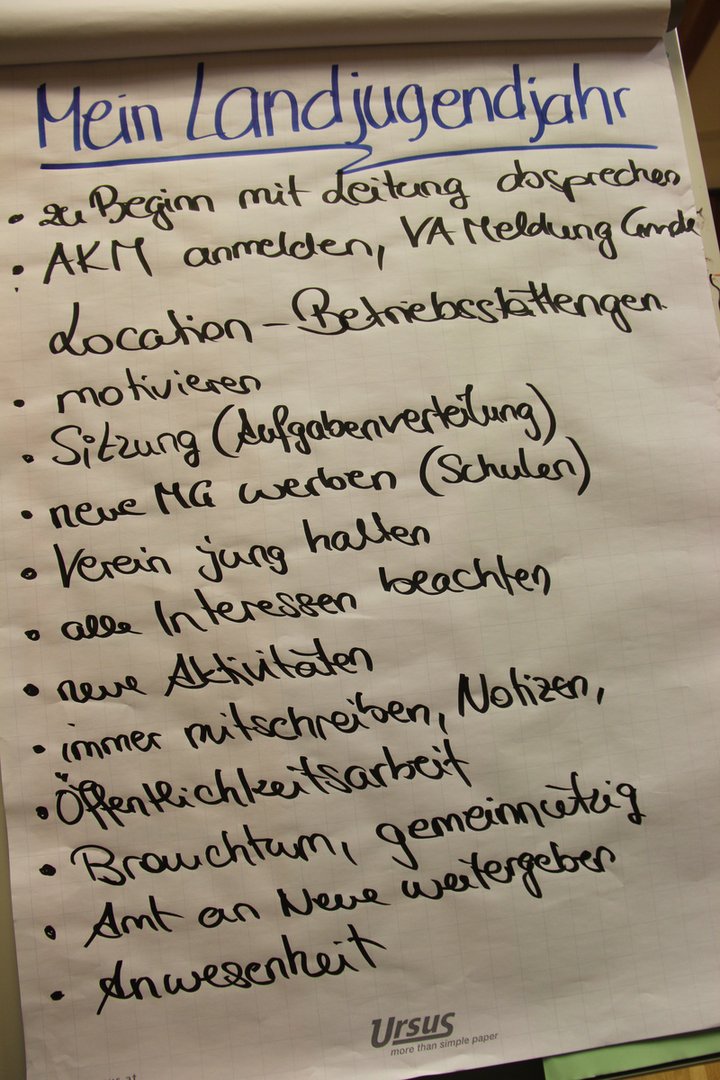 Mein Landjugendjahr
• zu Beginn mit Leitung absprechen
• AKM anmelden, VA Meldung
Location - Betriebsstättengen.
• motivieren
• Sitzung (Aufgabenverteilung)
• neue MG werben (Schulen)
• Verein jung halten
• alle Interessen beachten
• neue Aktivitäten
• immer mitschreiben, Notizen,
• Öffentlichkeitsarbeit
• Brauchtum, gemeinnützig
• Amt an Neue weitergeben
• Anwesenheit
Ursus
more than simple paper